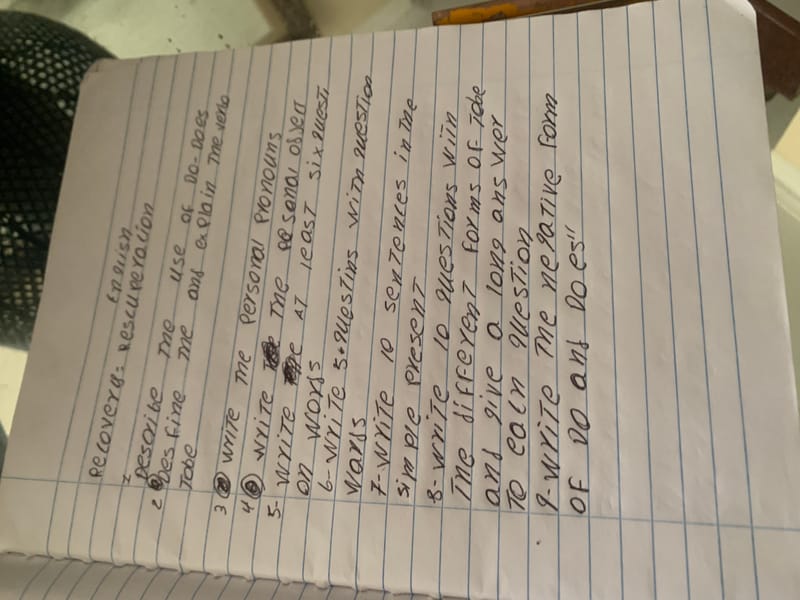 English
Recovery = Rescuperation
1 Describe the use of Do-Does
2 Desfine me and explain the verb
Tobe
3 write the personal pronouns
4 write the pesonal
5- write At least six questi
on words
6- write 5 questins with question
words
7- write 10 sentences in the
simple present
8- write 10 questions with
The different forms of Tobe
and give a long answer
To each question
9- write the negative form
of DO and Does"